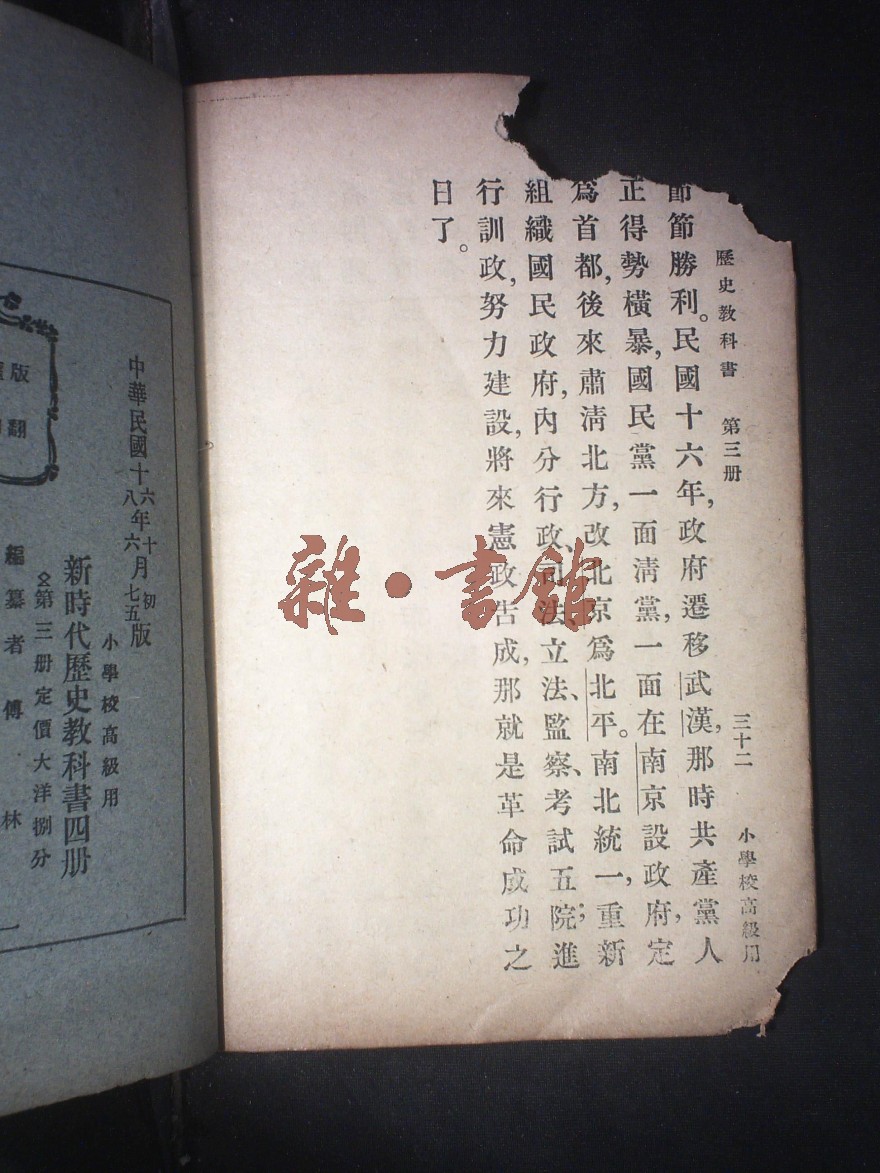 歷史教科書 第三册 三十二 小學校高級用
節節勝利。民國十六年,政府遷移武漢,那時共產黨人
正得勢橫暴,國民黨一面淸黨,一面在南京設政府,定
爲首都,後來肅淸北方,改北京爲北平。南北統一,重新
組織國民政府,內分行政、司法、立法、監察、考試五院;進
行訓政,努力建設,將來憲政吿成,那就是革命成功之
日了。
雜·書館
中華民國十六年十月初版
十八年六月七五版
小學校高級用
新時代歷史教科書四册
第三册定價大洋捌分
編纂者 傅林一
版
翻